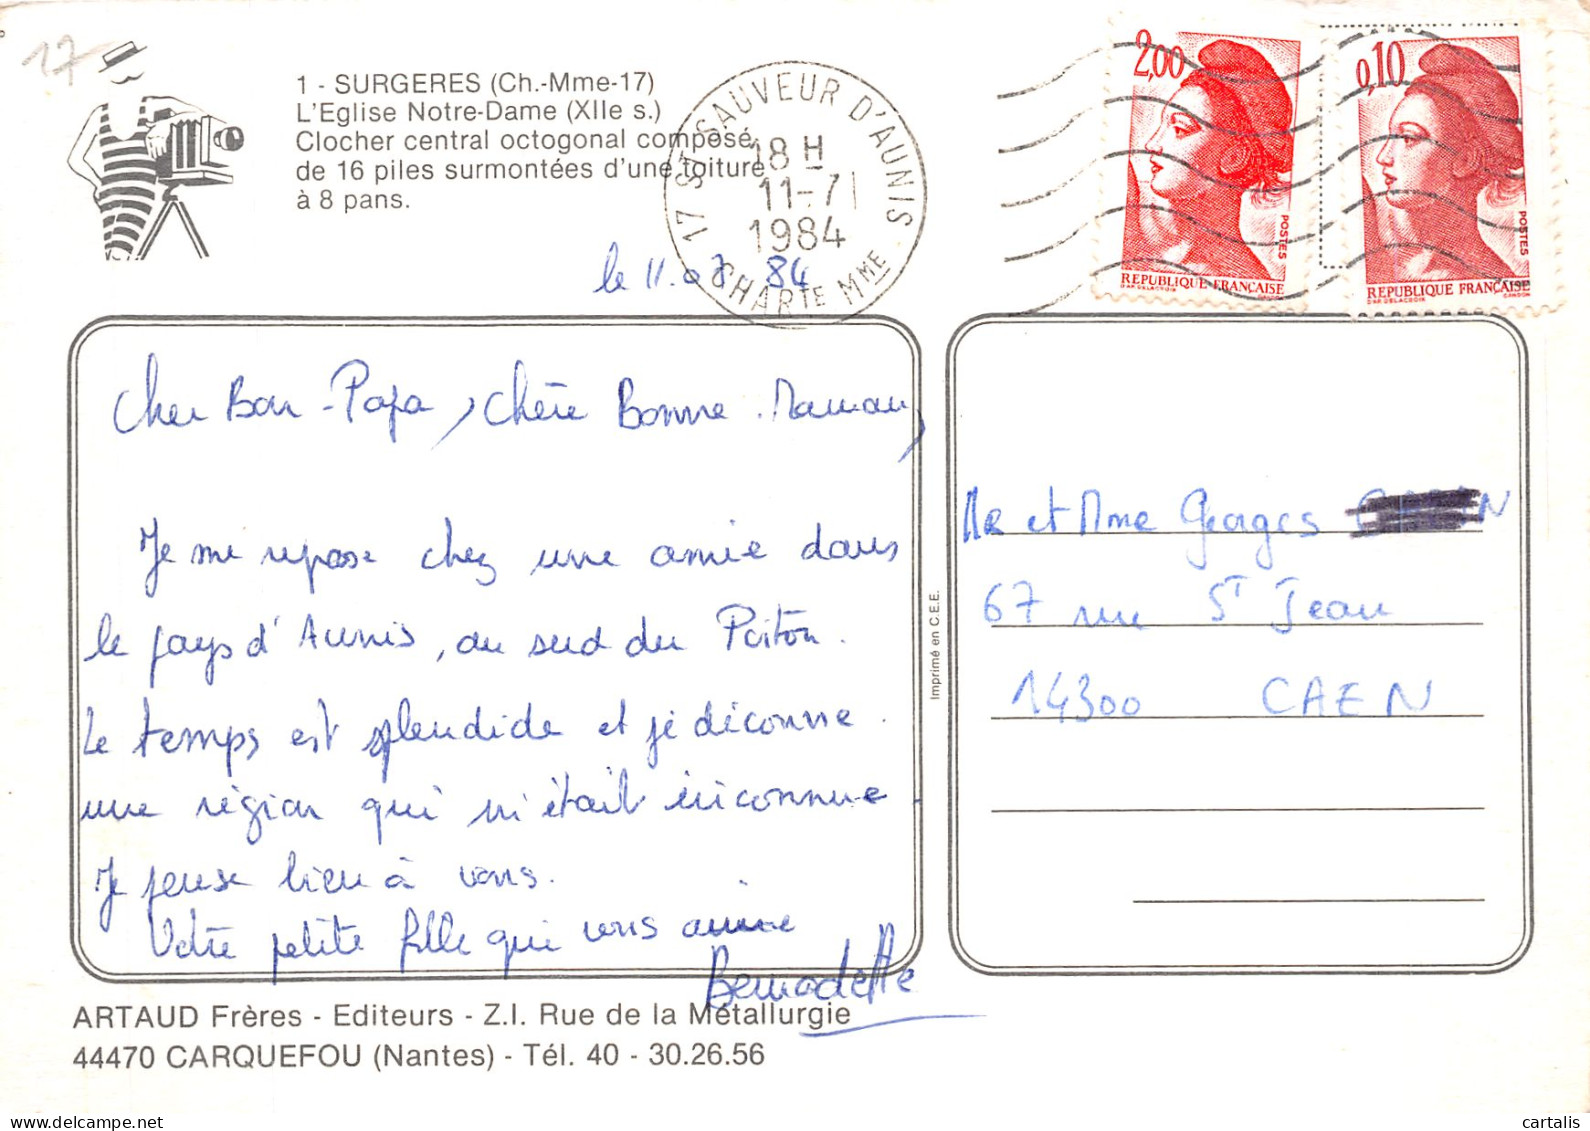 17
1 - SURGERES (Ch.-Mme-17)
L'Eglise Notre-Dame (XIIe s.)
Clocher central octogonal composé
de 16 piles surmontées d'une toiture
à 8 pans.
17 ST SAUVEUR D'AUNIS
18 H
11-7
1984
CHARTE MME
2,00
POSTES
REPUBLIQUE FRANÇAISE
0,10
POSTES
REPUBLIQUE FRANÇAISE
le 11.07 84
Cher Bon-Papa, chère Bonne-Maman,
Je me repose chez une amie dans
le pays d'Aunis, au sud du Poitou.
Le temps est splendide et je déconne
une région qui m'était inconnue.
Je pense bien à vous.
Votre petite fille qui vous aime
Bernadette
Imprimé en C.E.E.
Mr et Mme Georges
67 rue ST Jean
14300 CAEN
ARTAUD Frères - Editeurs - Z.I. Rue de la Métallurgie
44470 CARQUEFOU (Nantes) - Tél. 40 - 30.26.56
delcampe.net
cartalis